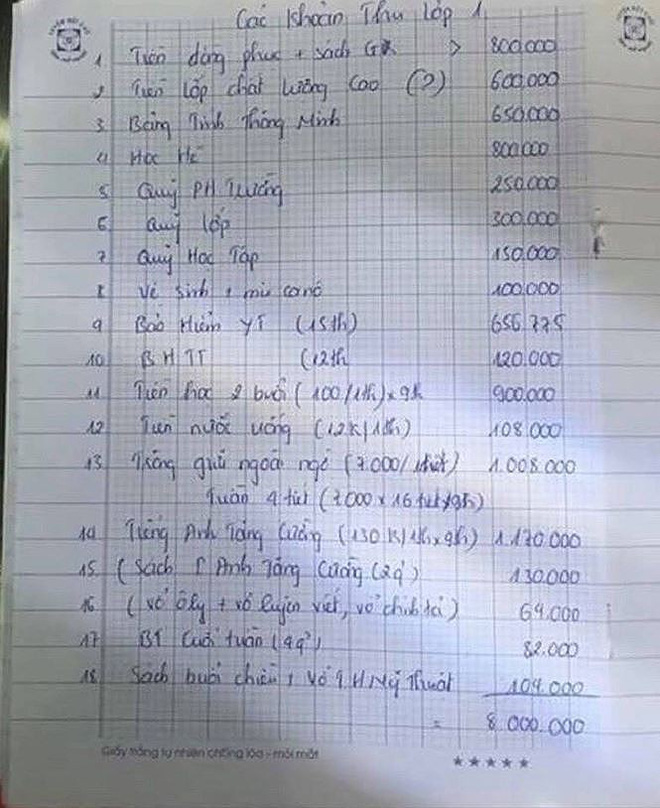 Các Khoản Thu Lớp 1
1 Tiền đồng phục + sách GK > 800.000
2 Tiền lớp chất lượng cao (?) 600.000
3 Bảng Tính Thông Minh 650.000
4 Học Hè 800.000
5 Quỹ PH Trường 250.000
6 Quỹ lớp 300.000
7 Quỹ Học Tập 150.000
8 Vệ sinh + 100.000
9 Bảo Hiểm YT (15th) 656.775
10 BHTT (12th 120.000
11 Tiền học 2 buổi (100/1th) x 9th 900.000
12 Tiền nước uống (12K/1th) 108.000
13 Trông giữ ngoài ngờ (7.000/1tiết) 1.008.000
Tuần 4 tiết (7.000 x 16 tiết/9th)
14 Tiếng Anh Tăng Cường (130K/1th x 9th) 1.170.000
15 (Sách T Anh Tăng Cường (2q') 130.000
16 (vở ôly + vở luyện viết, vở chính tả) 69.000
17 BT Cuối tuần (4q') 82.000
18 Sách buổi chiều, Vở Mỹ Thuật 104.000
= 8.000.000
Giấy trắng tự nhiên chống lóa - mỏi mắt
★★★★★